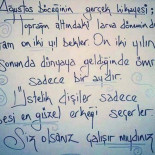 Ağustos böceğinin gerçek hikayesi;
Toprağın altındaki larva dönemi
on iki yıl bekler. On iki yılın
sonunda dünyaya geldiğinde ömrü
sadece bir aydır.
Üstelik dişiler sadece
sesi en güzel erkeği seçerler
Siz olsanız çalışır mıydınız?